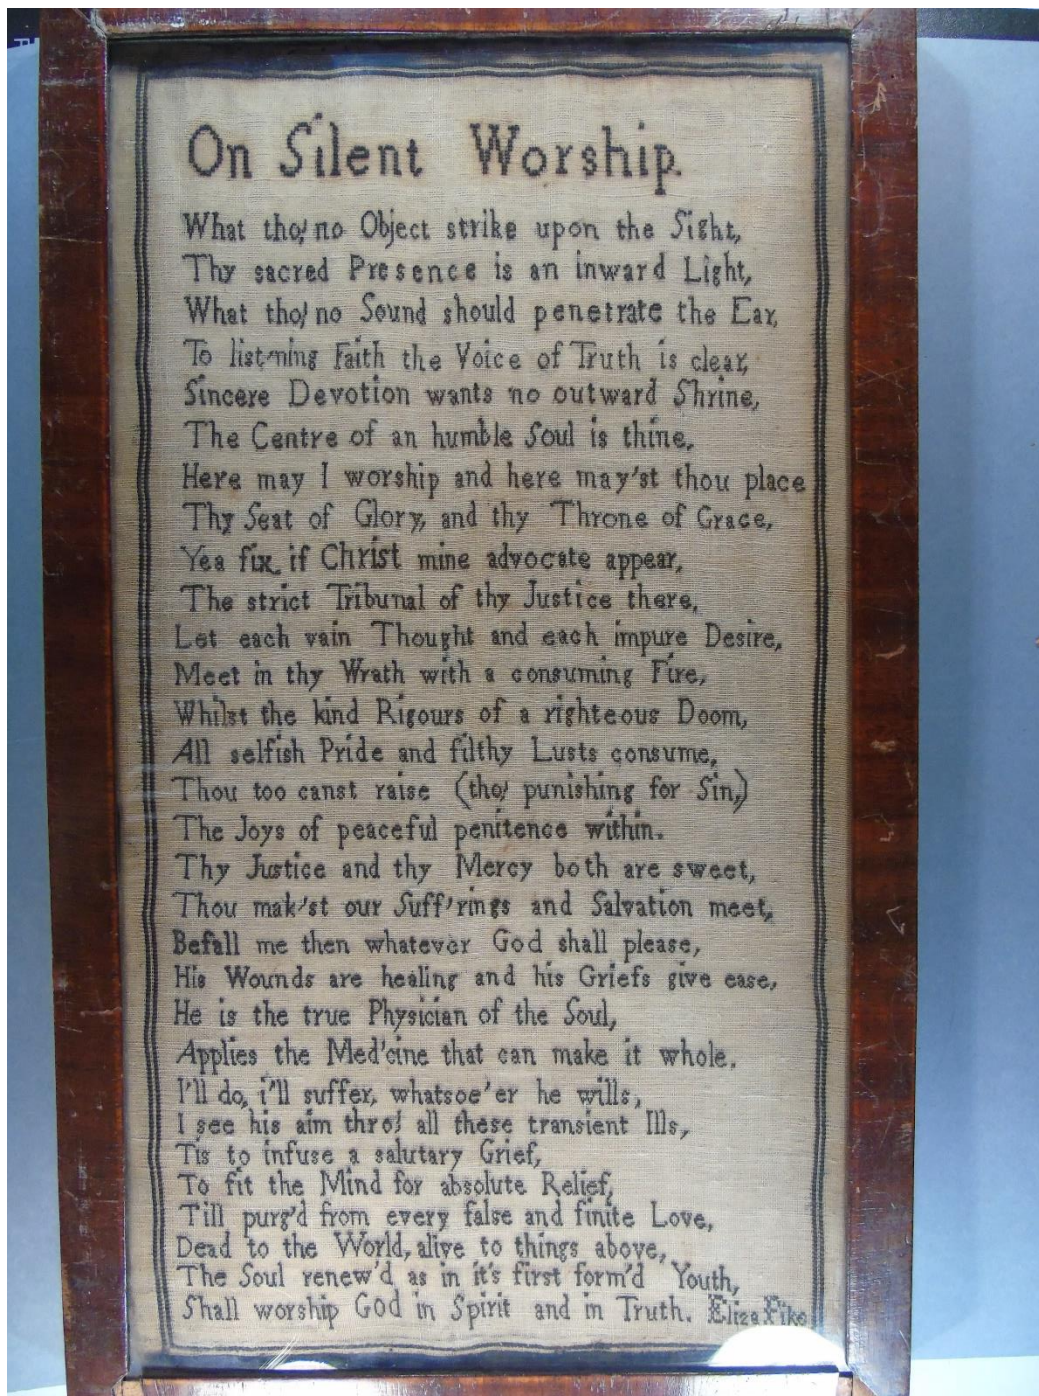 On Silent Worship.
What tho' no Object strike upon the Sight,
Thy sacred Presence is an inward Light,
What tho' no Sound should penetrate the Ear,
To list'ning Faith the Voice of Truth is clear,
Sincere Devotion wants no outward Shrine,
The Centre of an humble Soul is thine,
Here may I worship and here may'st thou place
Thy Seat of Glory, and thy Throne of Grace,
Yea fix, if Christ mine advocate appear,
The strict Tribunal of thy Justice there,
Let each vain Thought and each impure Desire,
Meet in thy Wrath with a consuming Fire,
Whilst the kind Rigours of a righteous Doom,
All selfish Pride and filthy Lusts consume,
Thou too canst raise (tho' punishing for Sin,)
The Joys of peaceful penitence within.
Thy Justice and thy Mercy both are sweet,
Thou mak'st our Suff'rings and Salvation meet,
Befall me then whatever God shall please,
His Wounds are healing and his Griefs give ease,
He is the true Physician of the Soul,
Applies the Med'cine that can make it whole.
I'll do, i'll suffer, whatsoe'er he wills,
I see his aim thro' all these transient Ills,
Tis to infuse a salutary Grief,
To fit the Mind for absolute Relief,
Till purg'd from every false and finite Love,
Dead to the World, alive to things above,
The Soul renew'd as in it's first form'd Youth,
Shall worship God in Spirit and in Truth. Eliza